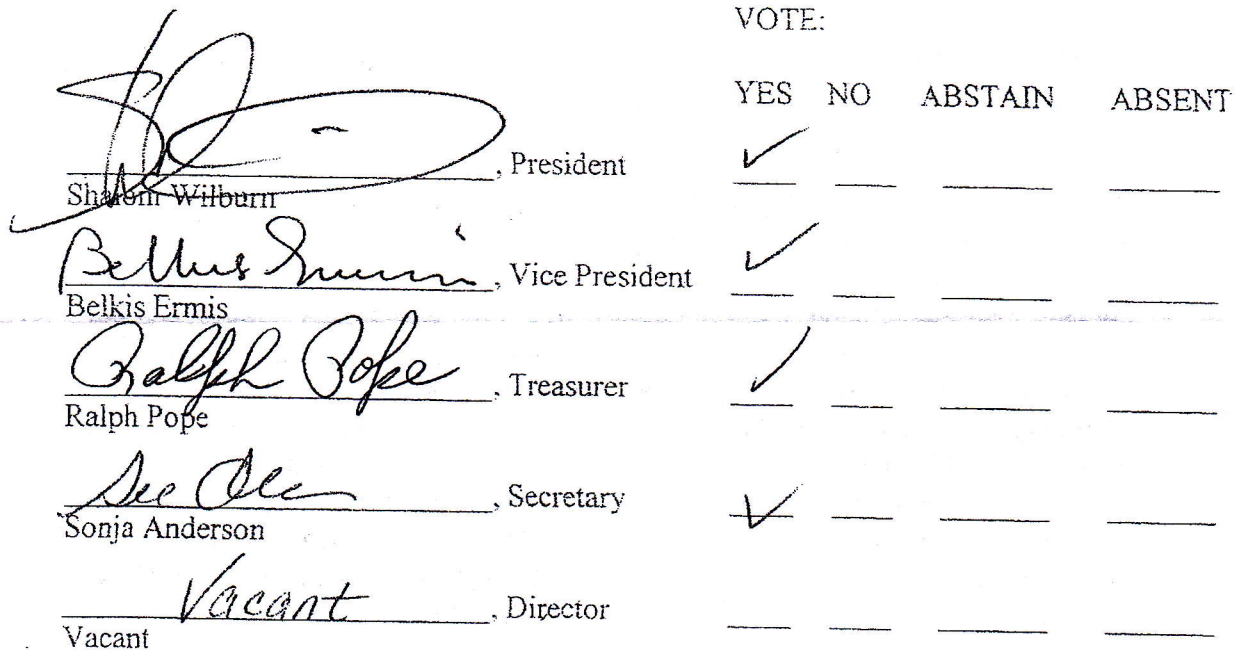 VOTE:
YES NO ABSTAIN ABSENT
, President
Shalom Wilburn
, Vice President
Belkis Ermis
Ralph Pope, Treasurer
Ralph Pope
, Secretary
Sonja Anderson
Vacant, Director
Vacant